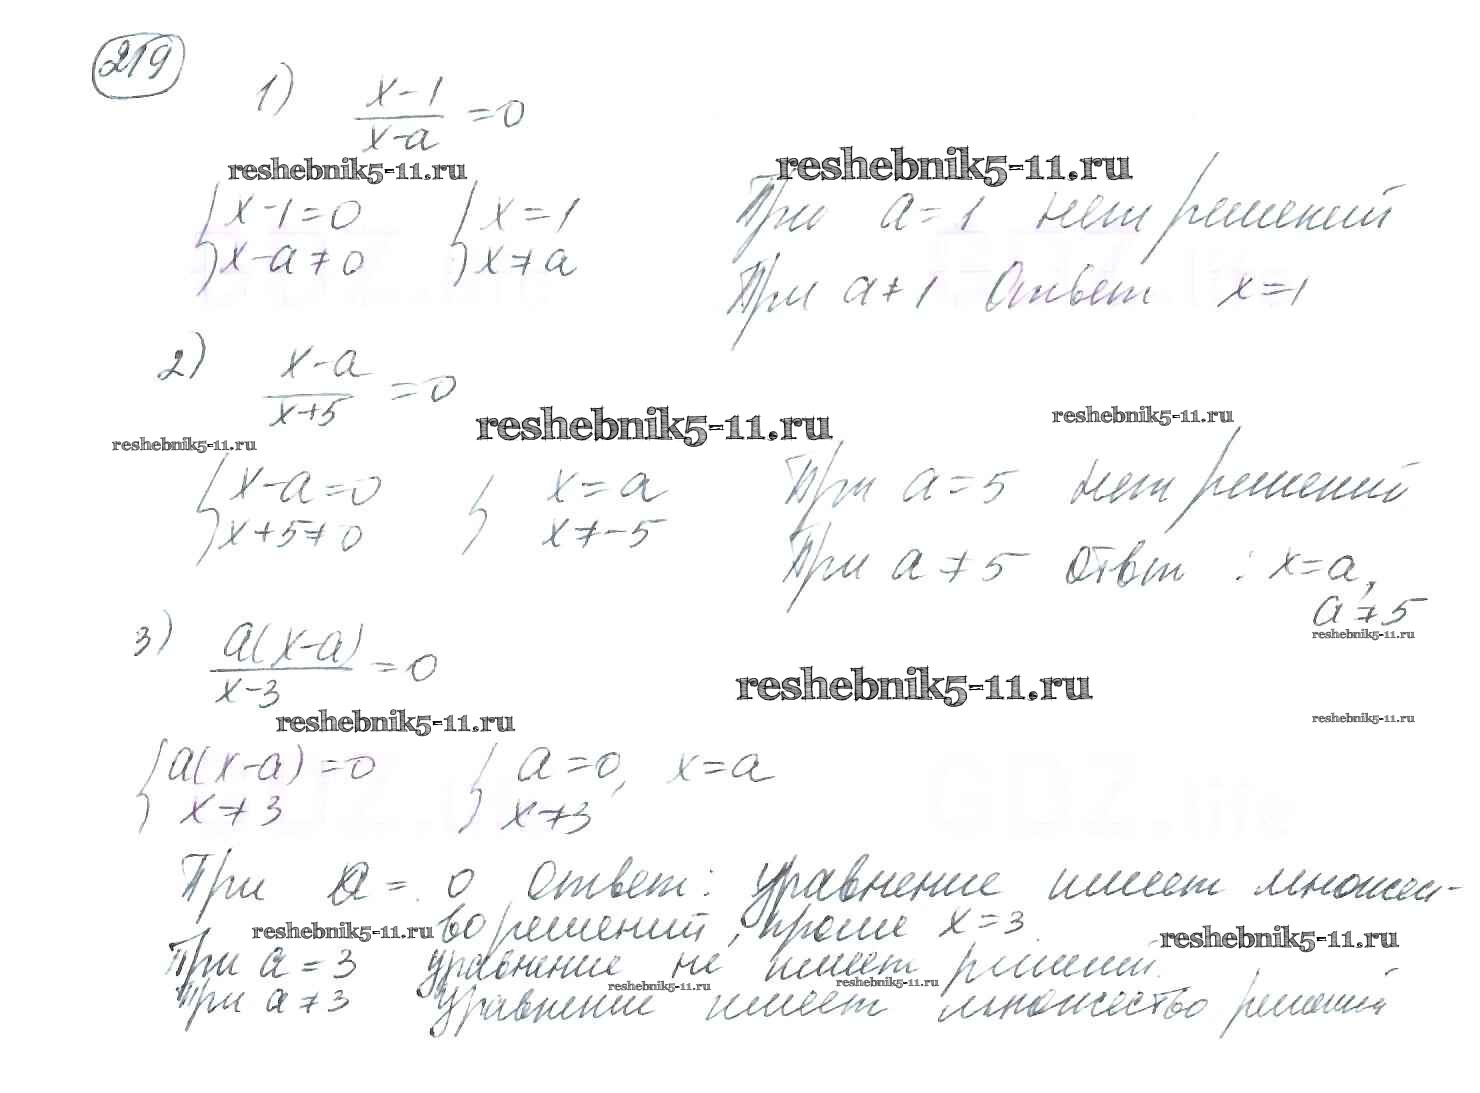 219
1) x-1 / x-a =0
reshebnik5-11.ru reshebnik5-11.ru
{ x-1=0 { x=1 При a=1 нет решений
x-a≠0 x≠a При a≠1 Ответ x=1
2) x-a / x+5 =0
reshebnik5-11.ru reshebnik5-11.ru reshebnik5-11.ru
{ x-a=0 { x=a При a=5 нет решений
x+5≠0 x≠-5 При a≠5 Ответ : x=a,
a≠5
reshebnik5-11.ru
3) a(x-a) / x-3 =0
reshebnik5-11.ru reshebnik5-11.ru reshebnik5-11.ru
{ a(x-a)=0 { a=0, x=a
x≠3 x≠3
GDZ.life
При a = 0 Ответ: уравнение имеет множест-
reshebnik5-11.ru во решений, кроме x=3. reshebnik5-11.ru
При a=3 уравнение не имеет решений.
reshebnik5-11.ru reshebnik5-11.ru
При a≠3 Уравнение имеет множество решений